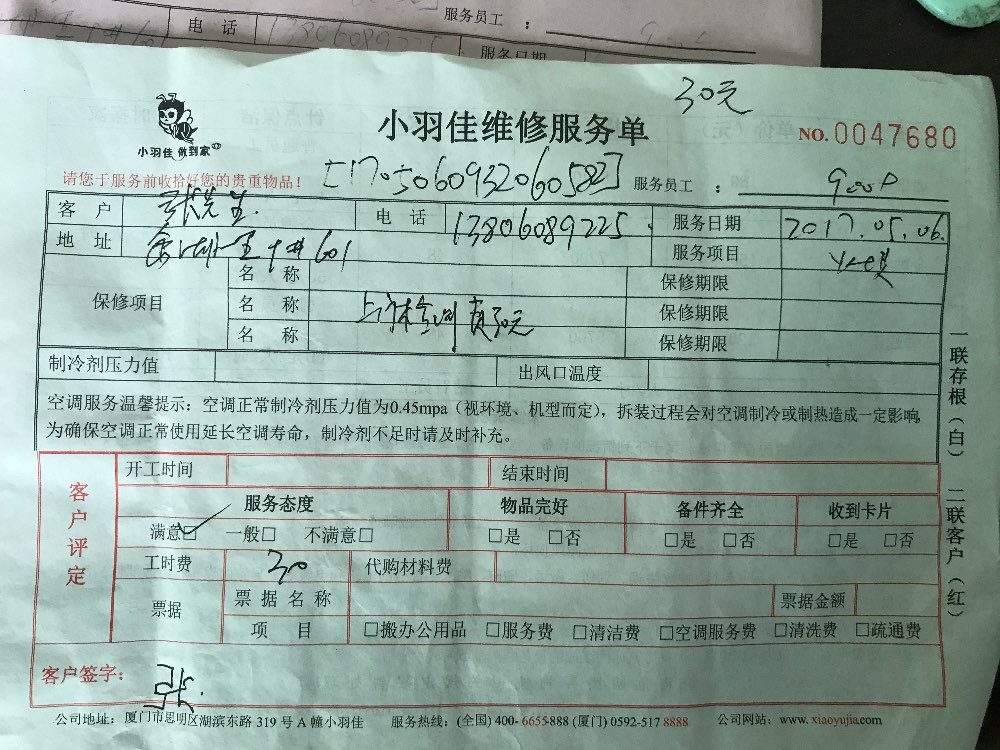 服务员工 :
电 话 13806089225
服务日期
30元
小羽佳 做到家
小羽佳维修服务单
NO.0047680
请您于服务前收拾好您的贵重物品!
[1705060932060582]
服务员工 :
客 户 张先生. 电 话 13806089225 服务日期 2017.05.06.
地 址 601 服务项目
保修项目 名 称 保修期限
名 称 上门检测费30元 保修期限
名 称 保修期限
制冷剂压力值 出风口温度
空调服务温馨提示:空调正常制冷剂压力值为0.45mpa(视环境、机型而定),拆装过程会对空调制冷或制热造成一定影响,
为确保空调正常使用延长空调寿命,制冷剂不足时请及时补充。
一联存根(白) 二联客户(红)
客户评定
开工时间 结束时间
服务态度 物品完好 备件齐全 收到卡片
满意☑ 一般□ 不满意□ □是 □否 □是 □否 □是 □否
工时费 30 代购材料费
票据 票据名称 票据金额
项 目 □搬办公用品 □服务费 □清洁费 □空调服务费 □清洗费 □疏通费
客户签字: 张.
公司地址:厦门市思明区湖滨东路 319 号 A 幢小羽佳 服务热线:(全国) 400-6655-888 (厦门) 0592-517 8888 公司网站:www.xiaoyujia.com